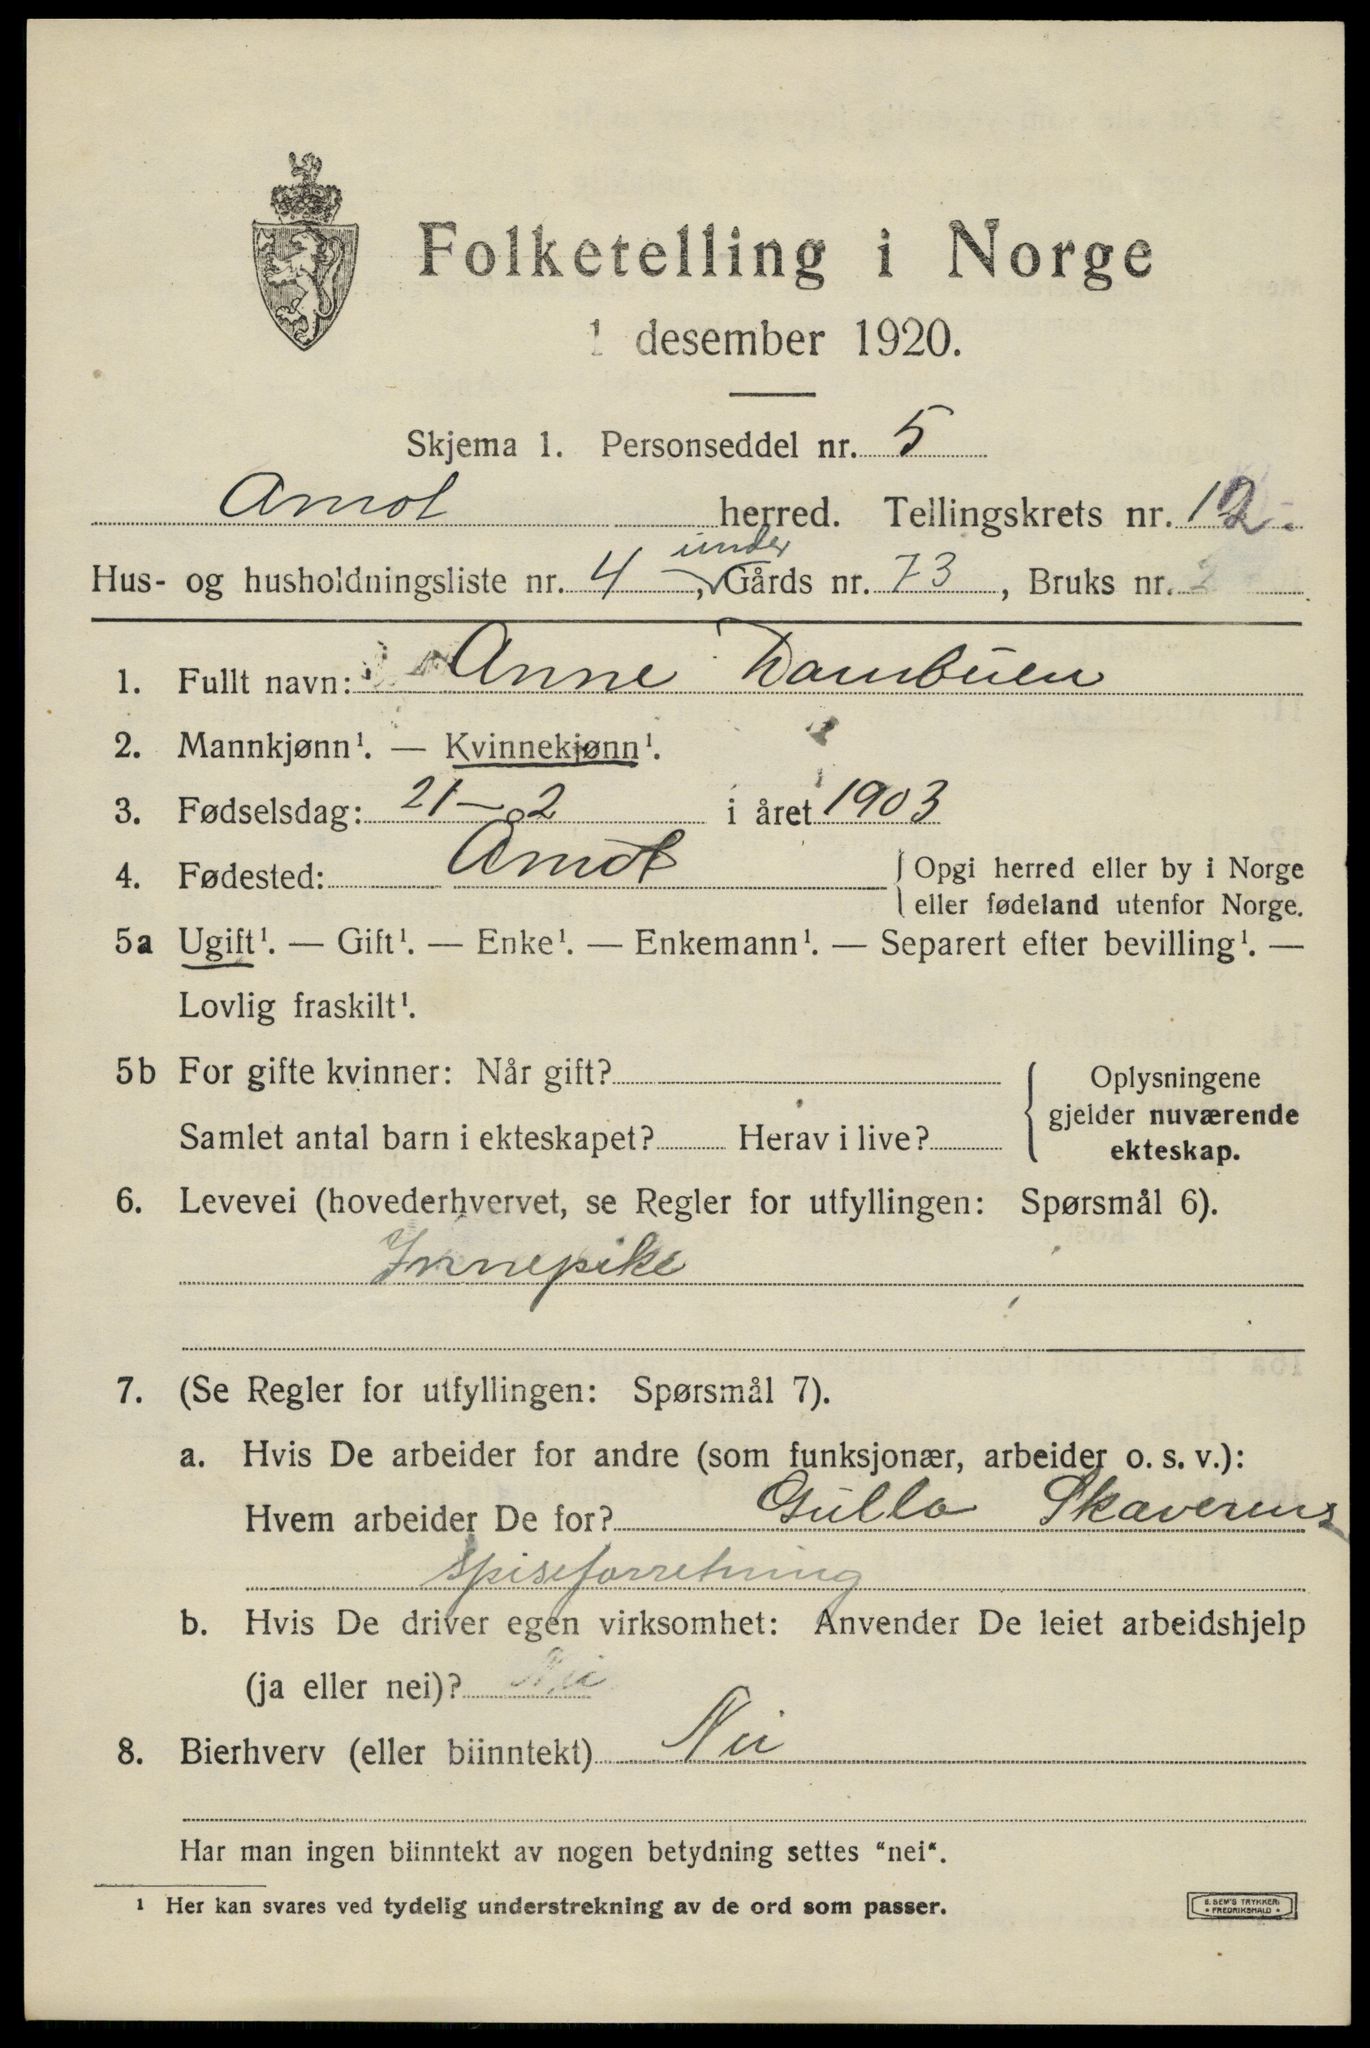 Folketelling i Norge
1 desember 1920.
Skjema 1. Personseddel nr. 5
Amot herred. Tellingskrets nr. 12.
under
Hus- og husholdningsliste nr. 4, Gårds nr. 73, Bruks nr. 2
1. Fullt navn: Anne Dambuen
2. Mannkjønn¹. — Kvinnekjønn¹.
3. Fødselsdag: 21-2 i året 1903
4. Fødested: Åmot { Opgi herred eller by i Norge
eller fødeland utenfor Norge.
5a Ugift¹. — Gift¹. — Enke¹. — Enkemann¹. — Separert efter bevilling¹. —
Lovlig fraskilt¹.
5b For gifte kvinner: Når gift? { Oplysningene
gjelder nuværende
Samlet antal barn i ekteskapet? Herav i live?
ekteskap.
6. Levevei (hovederhvervet, se Regler for utfyllingen: Spørsmål 6).
Innepike
7. (Se Regler for utfyllingen: Spørsmål 7).
a. Hvis De arbeider for andre (som funksjonær, arbeider o. s. v.):
Hvem arbeider De for? Gulla Skaverens
spiseforretning
b. Hvis De driver egen virksomhet: Anvender De leiet arbeidshjelp
(ja eller nei)? Nei
8. Bierhverv (eller biinntekt) Nei
Har man ingen biinntekt av nogen betydning settes "nei".
¹ Her kan svares ved tydelig understrekning av de ord som passer.
E. SEM'S TRYKKERI
* FREDRIKSHALD *